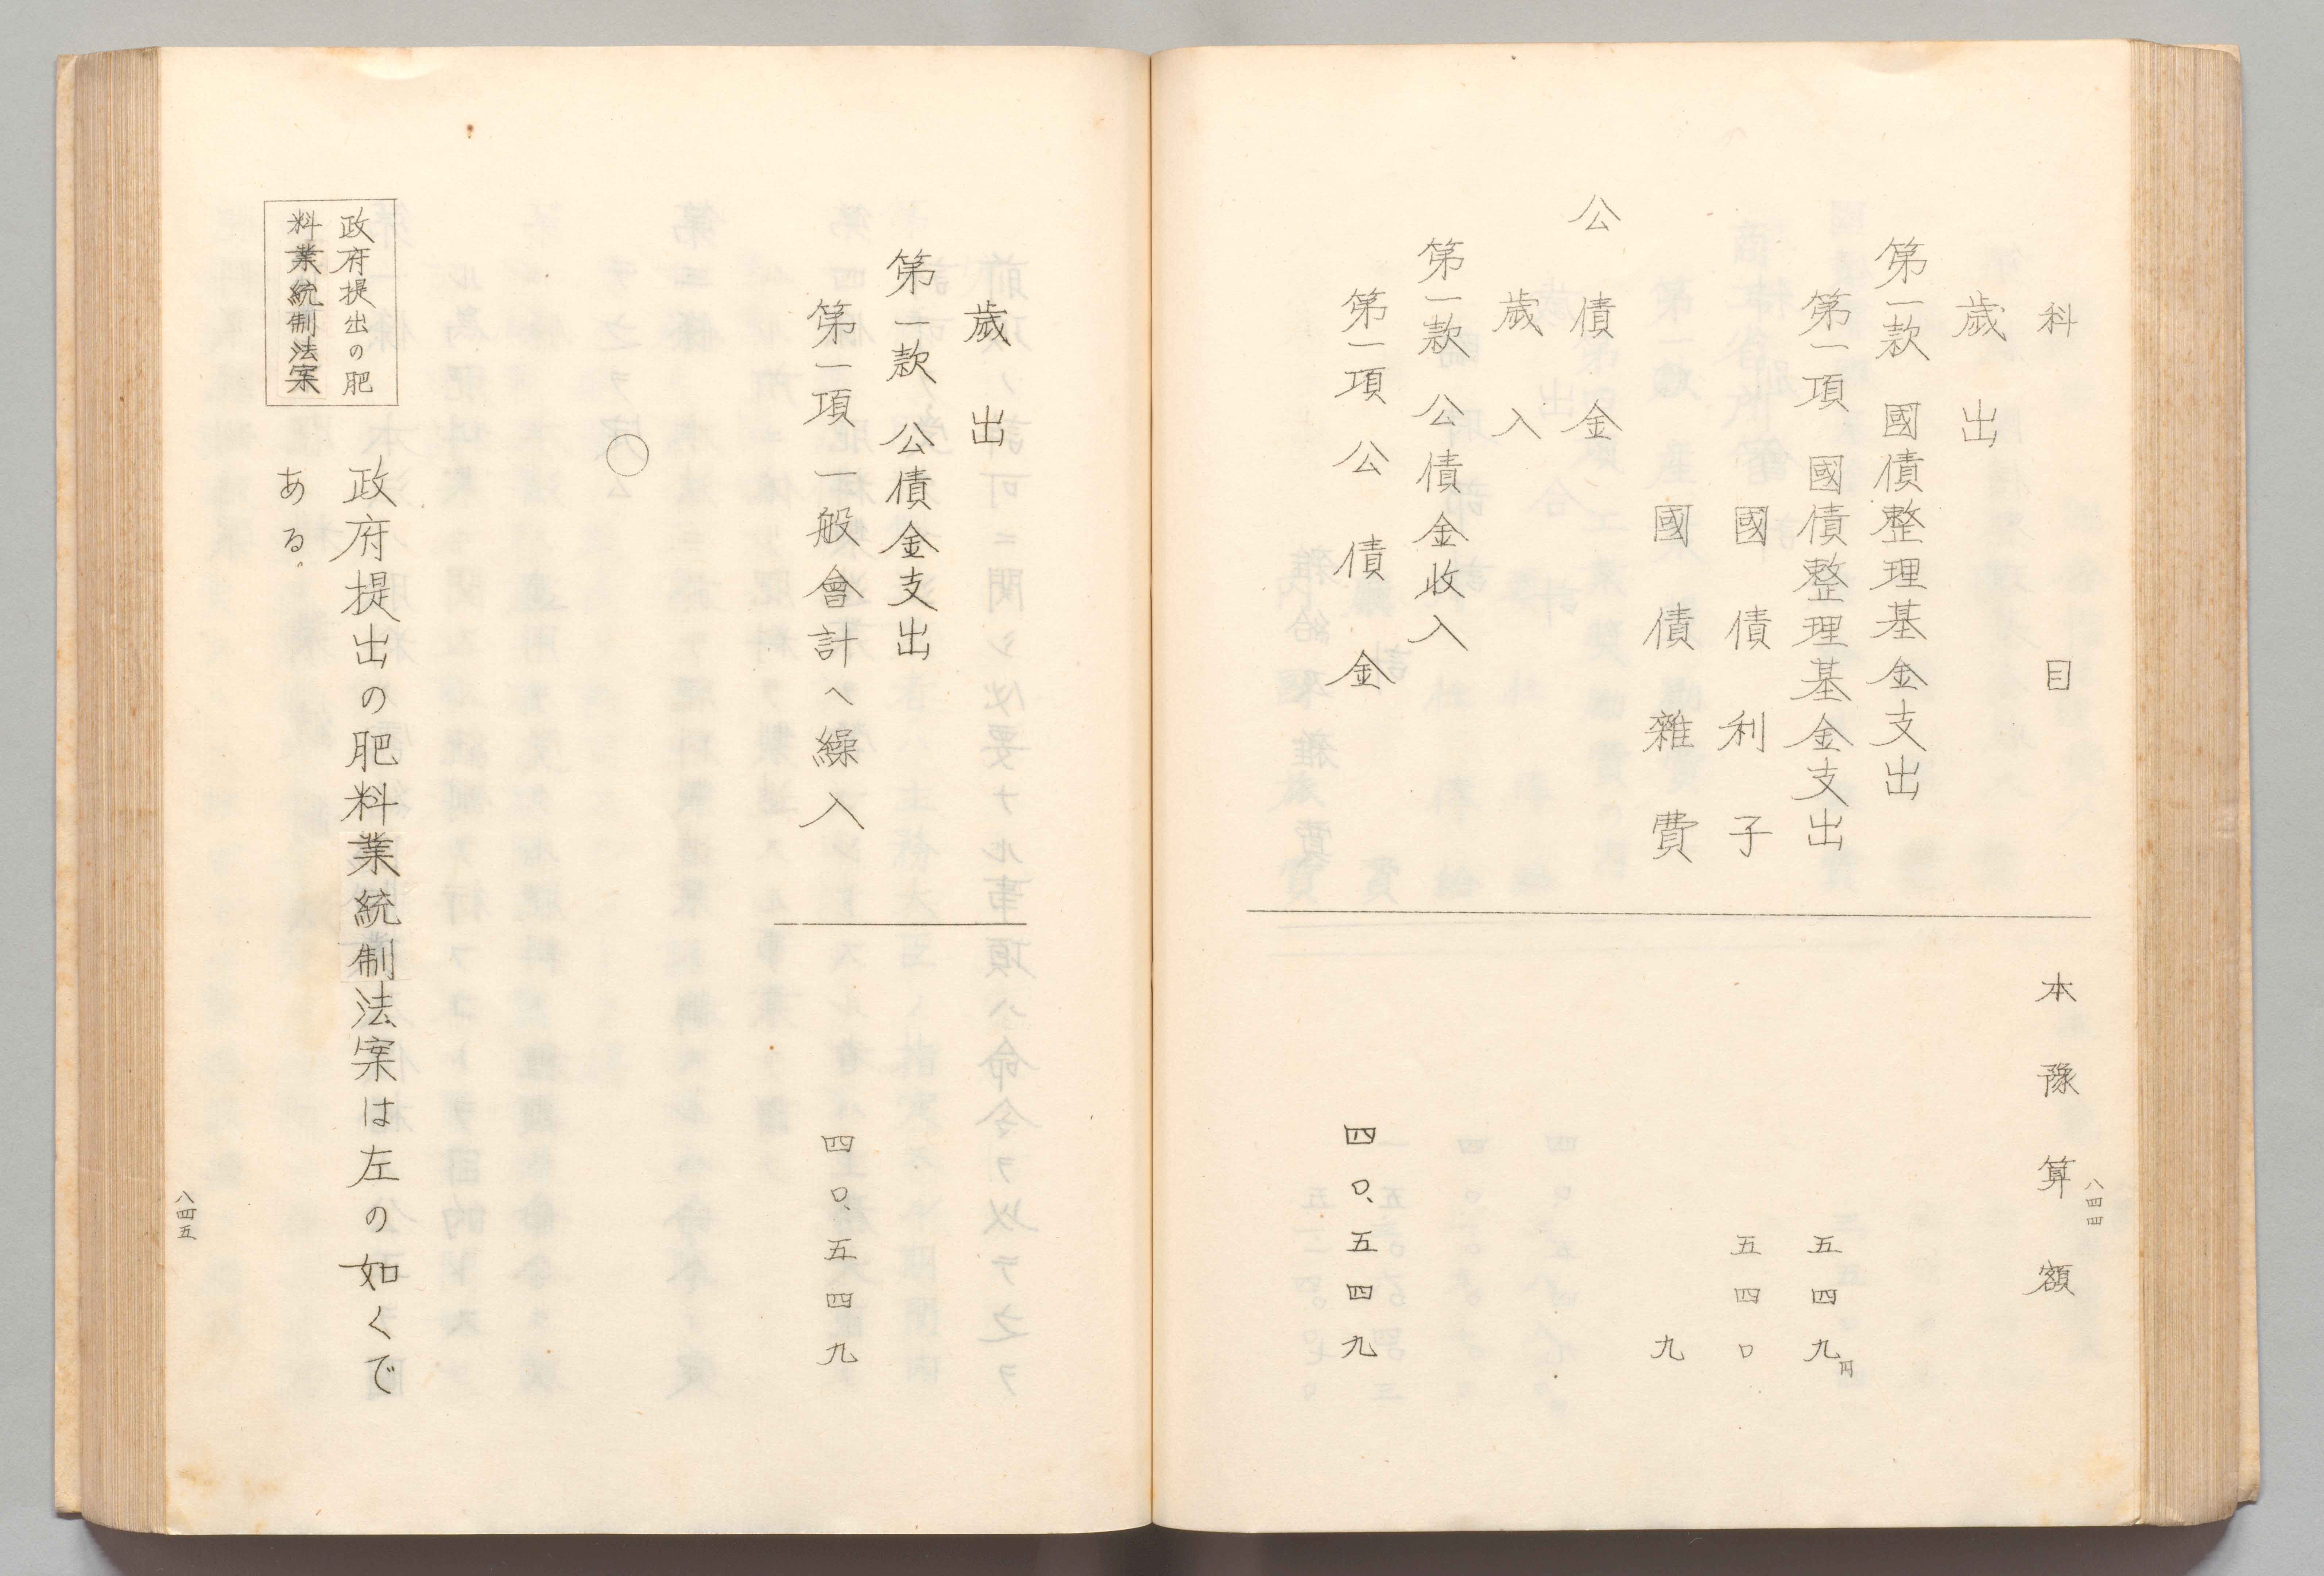 科目 本豫算額
歳出
第一款 國債整理基金支出
第一項 國債整理基金支出 五四九円
國債利子 五四〇
國債雜費 九
公債金
歳入
第一款 公債金收入
第一項 公債金 四〇、五四九
八四四
歳出
第一款 公債金支出
第一項 一般會計へ繰入 四〇、五四九
〇
政府提出の肥
料業統制法案
政府提出の肥料業統制法案は左の如くで
ある。
八四五